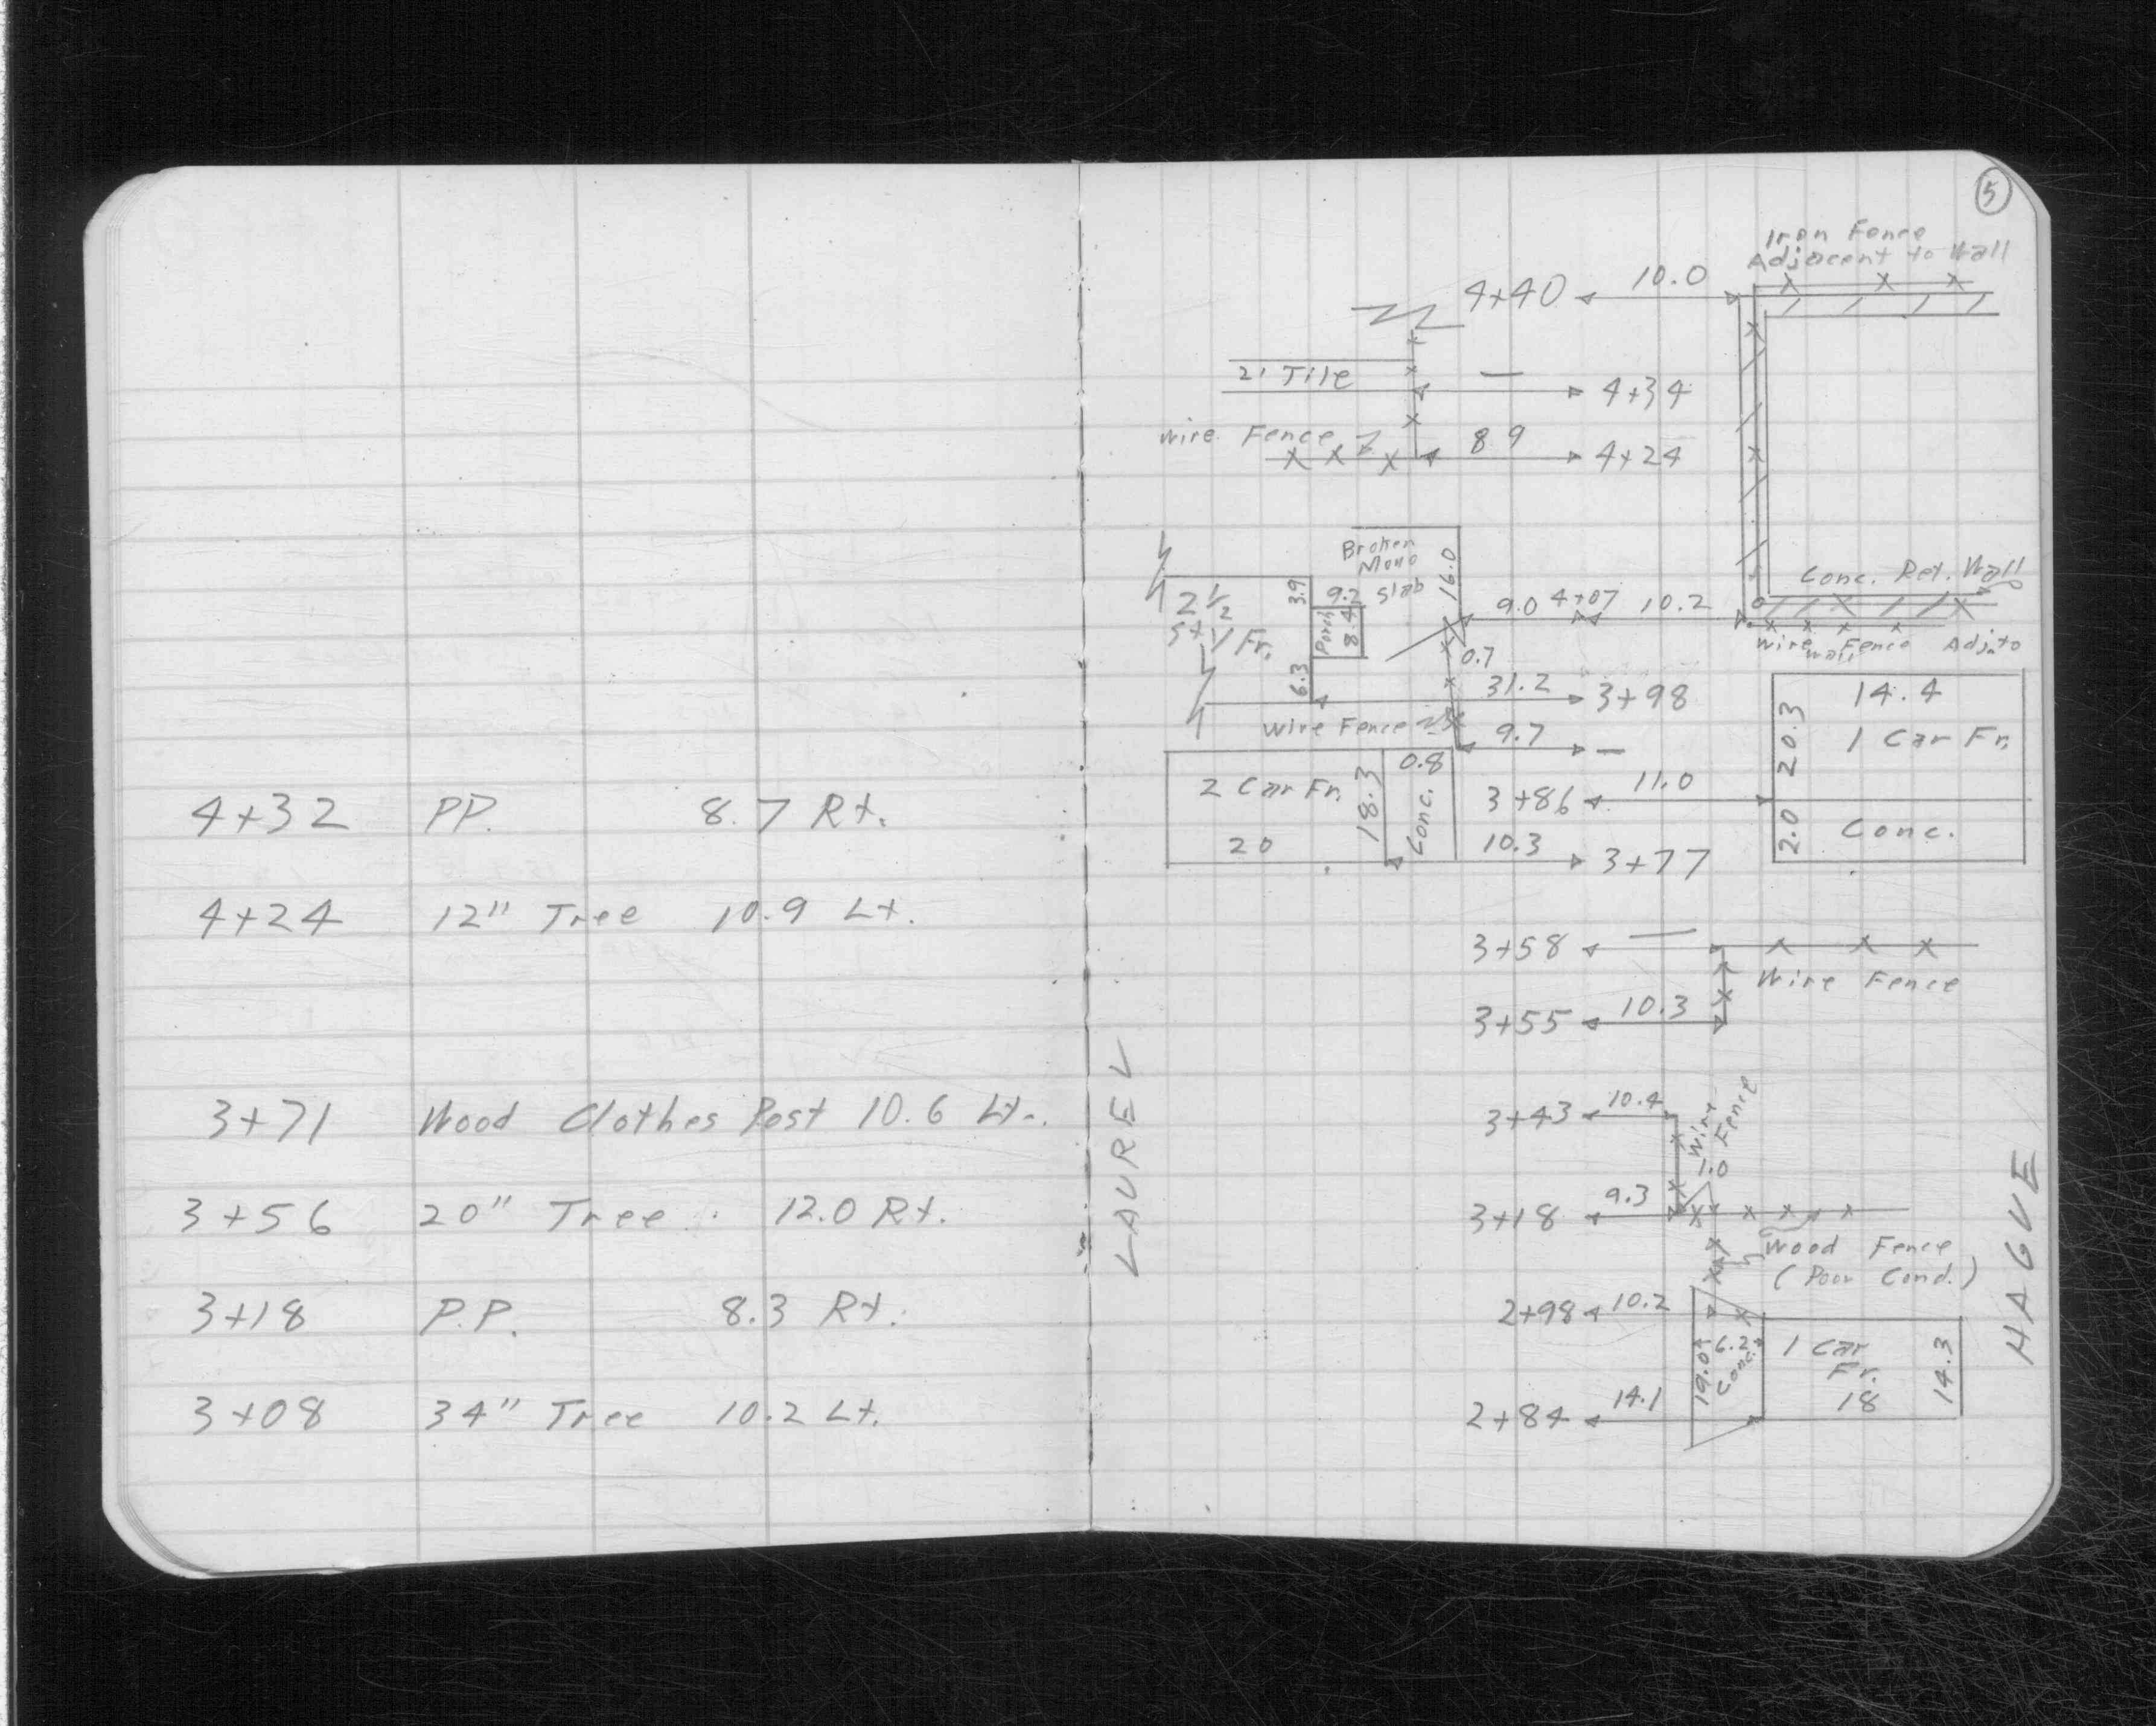 4+32 PP. 8.7 Rt.
4+24 12" Tree 10.9 Lt.
3+71 Wood Clothes Post 10.6 Lt.
3+56 20" Tree 12.0 Rt.
3+18 P.P. 8.3 Rt.
3+08 34" Tree 10.2 Lt.
5
Iron Fence
Adjacent to Wall
4+40 10.0
2' Tile — 4+34
Wire Fence 8 9 4+24
Broken
Mono
Slab
16.0
Conc. Ret. Wall
2 1/2
St'y Fr.
3.9
9.2
Porch
8.4
6.3
9.0 4+07 10.2
Wire Fence Adj. to
Wall
0.7
31.2 3+98
Wire Fence
9.7 —
14.4
20.3
1 Car Fr.
2 Car Fr.
18.3
0.8
Conc.
20
3+86 11.0
2.0
Conc.
10.3 3+77
3+58 —
Wire Fence
3+55 10.3
LAUREL
3+43 10.4
Wire
Fence
1.0
3+18 9.3
Wood Fence
(Poor Cond.)
HAGUE
2+98 10.2
19.0
6.2
Conc.
1 Car
Fr.
18
14.3
2+84 14.1